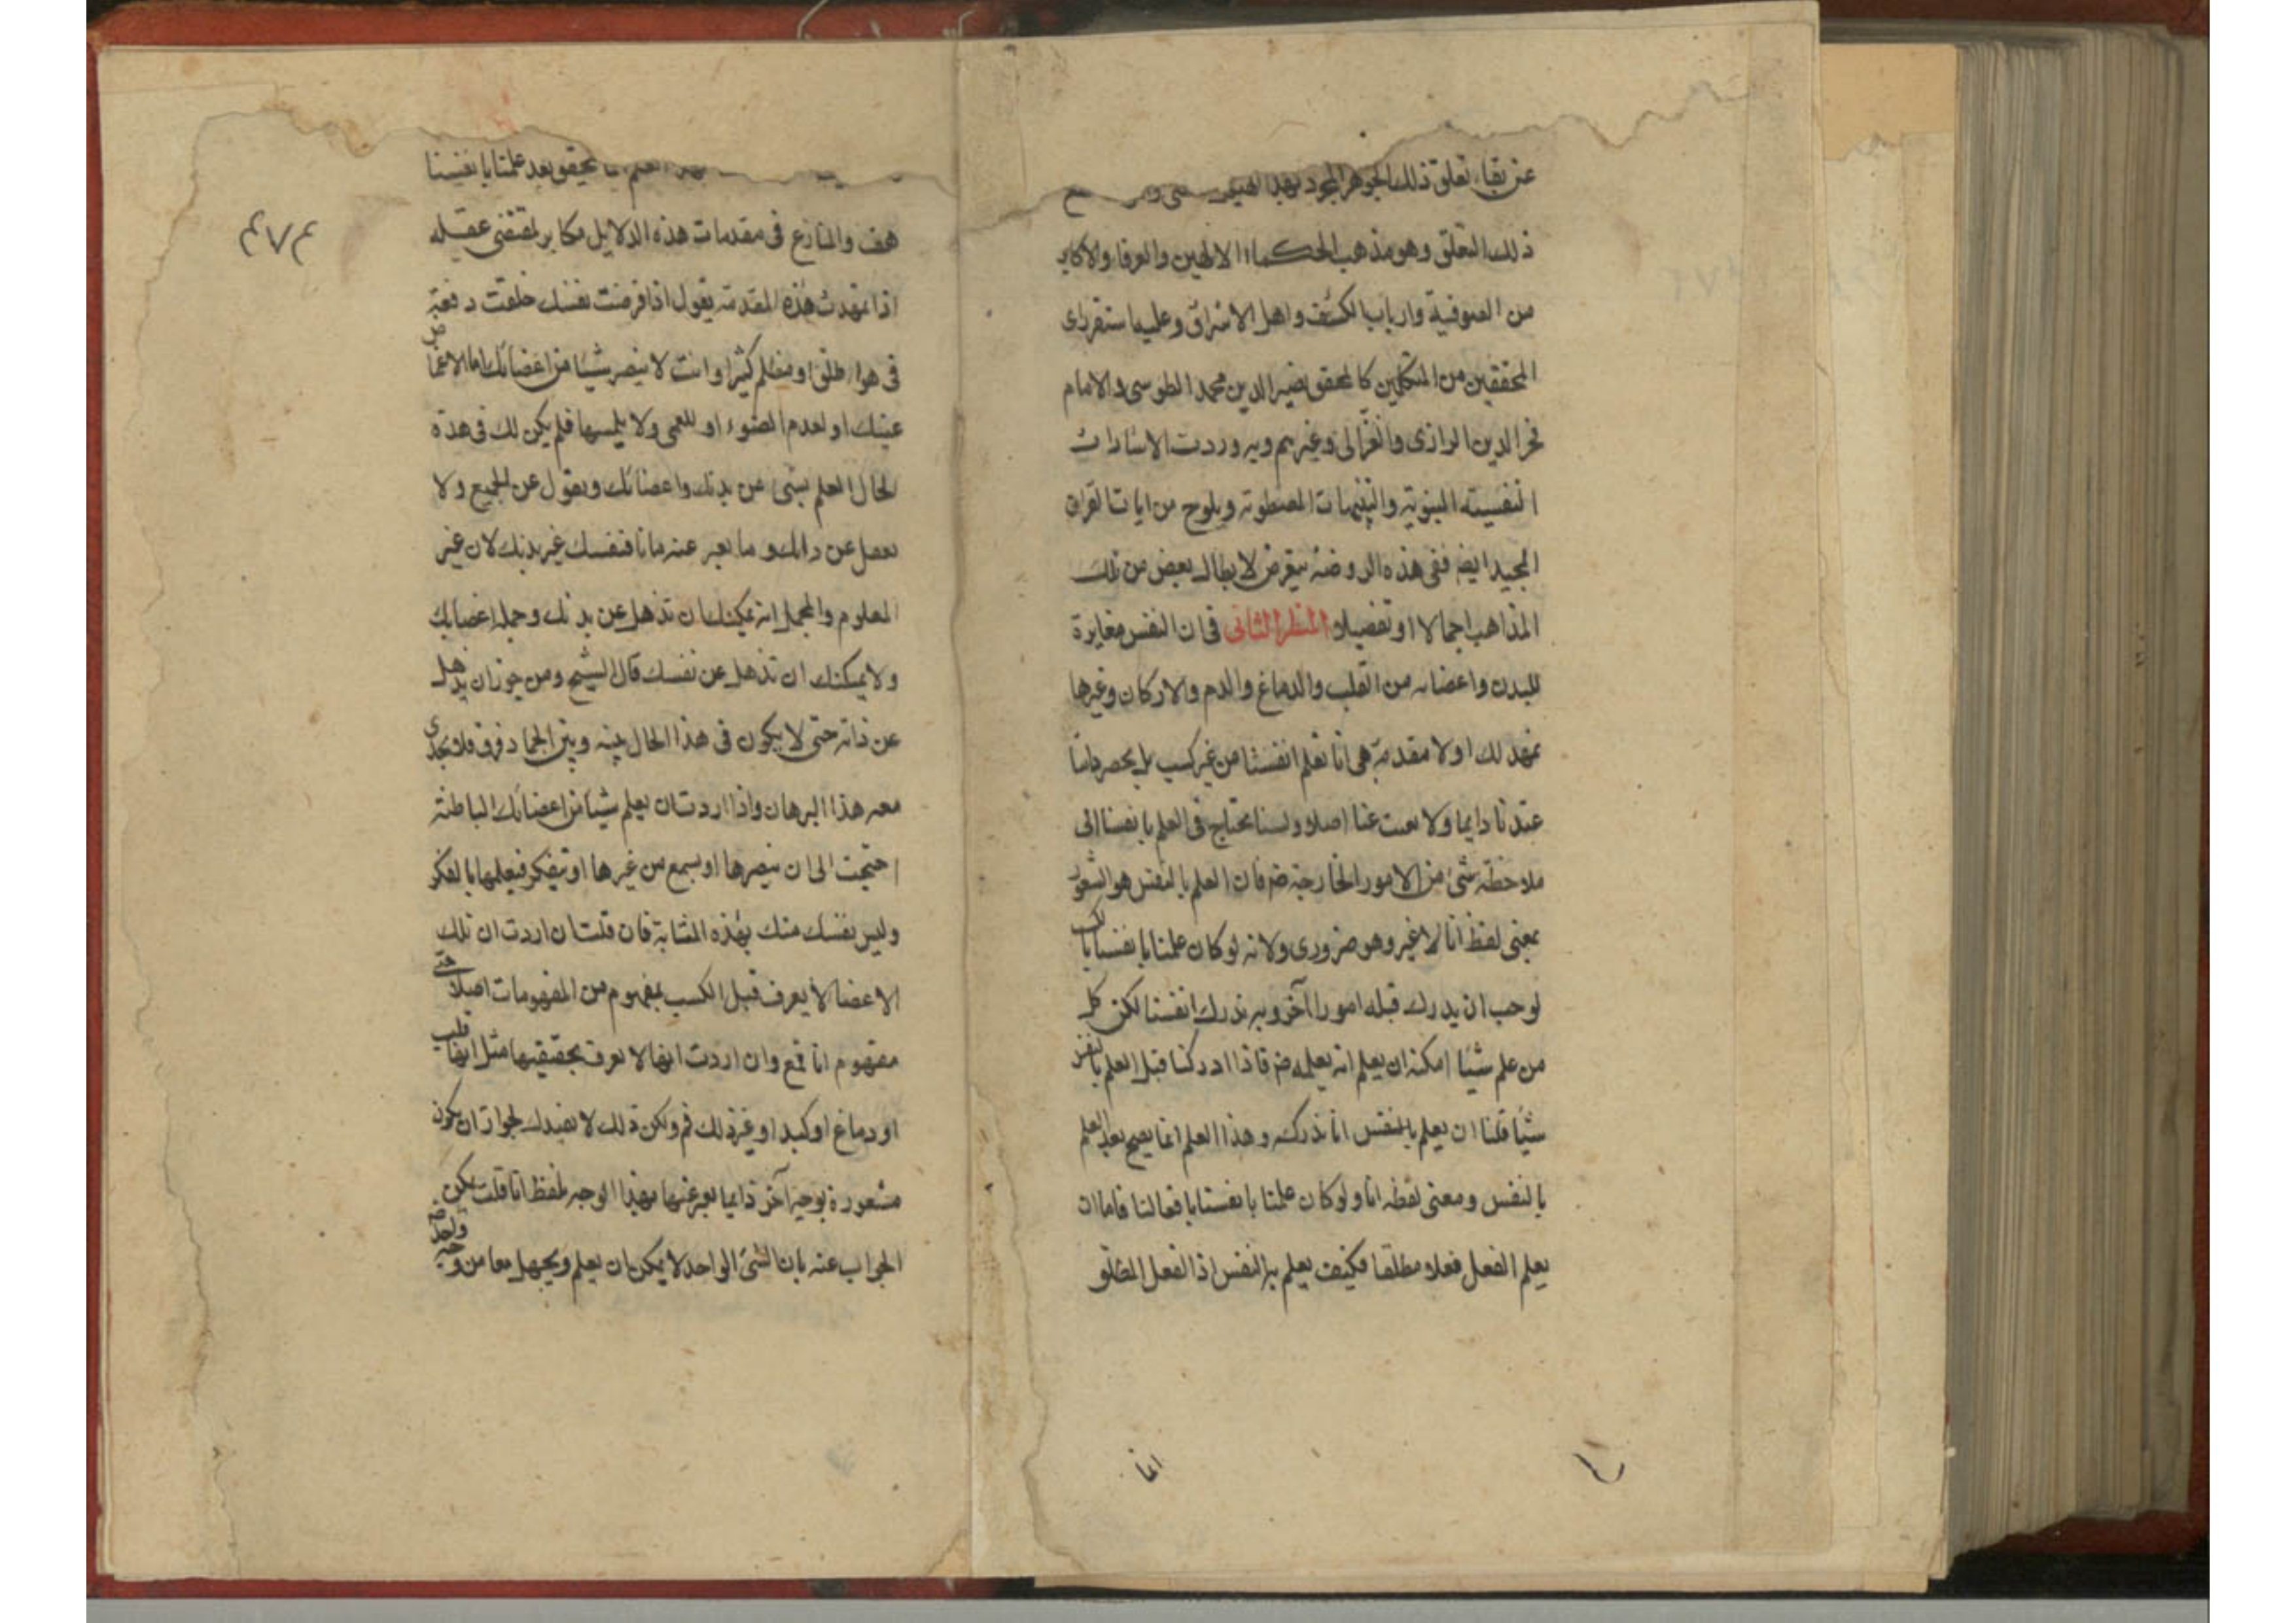 عن بقاء تعلق ذلك الجوهر المجرد بهذا
ذلك التعلق وهو مذهب الحكماء الالهين والعرفاء والاكابر
من الصوفية وارباب الكشف واهل الاشراق وعليه استقر راى
المحققين من المتكلمين كالمحقق نصير الدين محمد الطوسى والامام
فخر الدين الرازى والغزالى وغيرهم وبه وردت الاشارات
النفيسته النبوية والتنبيهات المصطوية ويلوح من ايات القران
المجيد ايضه ففى هذه الروضة نتعرض لابطال بعض من تلك
المذاهب اجمالا او تفصيلا المنظر الثانى فى ان النفس مغايرة
للبدن واعضائه من القلب والدماغ والدم والاركان وغيرها
نمهد لك اولا مقدمة هى انا نعلم انفسنا من غير كسب بل يحصر ذاتنا
عندنا دايما ولا عنا اصلا ولسنا نحتاج فى العلم بانفسنا الى
ملاحظة شئ من الامور الخارجة ضه فان العلم بالنفس هو الشعور
بمعنى لفظ انا لا غير وهو ضرورى ولانه لو كان علمنا بانفسنا بالكسب
لوجب ان يدرك قبله امورا آخر وبه ندرك انفسنا لكن كل
من علم شيئا امكنه ان يعلم انه يعلمه ضه فاذا ادركنا قبل العلم بالنفس
شيئا قلنا ان يعلم بالنفس انا ندركه وهذا العلم انما يصح بعد العلم
بالنفس ومعنى لفظه انا ولو كان علمنا بانفسنا بافعالنا فاما ان
يعلم الفعل فعلا مطلقا فكيف يعلم به النفس اذ الفعل المطلق
انما
٤٧٤
العلم يتحقق بعد علمنا بانفسنا
هف والمنازع فى مقدمات هذه الدلايل مكابر لمقتضى عقله
اذا تمهدت هذه المقدمة يقول اذا فرضت نفسك خلقت دفعة
فى هواء طلق او مظلم كثيرا وانت لا تبصر شيئا من اعضائك اما لاغماض
عينك او لعدم الضوء او للعمى ولا يلمسها فلم يكن لك فى هذه
الحال العلم بشئ من بدنك واعضائك ويغفل عن الجميع ولا
يغفل عن ذاتك وما يعبر عنه بانا فنفسك غير بدنك لان غير
المعلوم والمجمل انه يمكنك ان تذهل عن بدنك وجملة اعضائك
ولا يمكنك ان تذهل عن نفسك قال الشيخ ومن جوز ان يذهل
عن ذاته حتى لا يكون فى هذا الحال بينه وبين الجماد فرق فلا يجدى
معه هذا البرهان واذا اردت ان يعلم شيئا من اعضائك الباطنة
احتجت الى ان تبصرها او يسمع من غيرها او تتفكر فيعلمها بالفكر
وليس نفسك منك بهذه المثابة فان قلت ان اردت ان تلك
الاعضاء لا يعرف قبل الكسب بمفهوم من المفهومات اصلا حتى
مفهوم انا فمع وان اردت انها لا يعرف بحقيقيتها مثل انها قلب
او دماغ او كبد او غير ذلك فم ولكن ذلك لا يفيدك لجواز ان يكون
مشعورة بوجه آخر دايما يعبر عنها بهذا الوجه بلفظ انا قلت يمكن
الجواب عنه بان الشئ الواحد لا يمكن ان يعلم ويجهل معا من وجه واحد